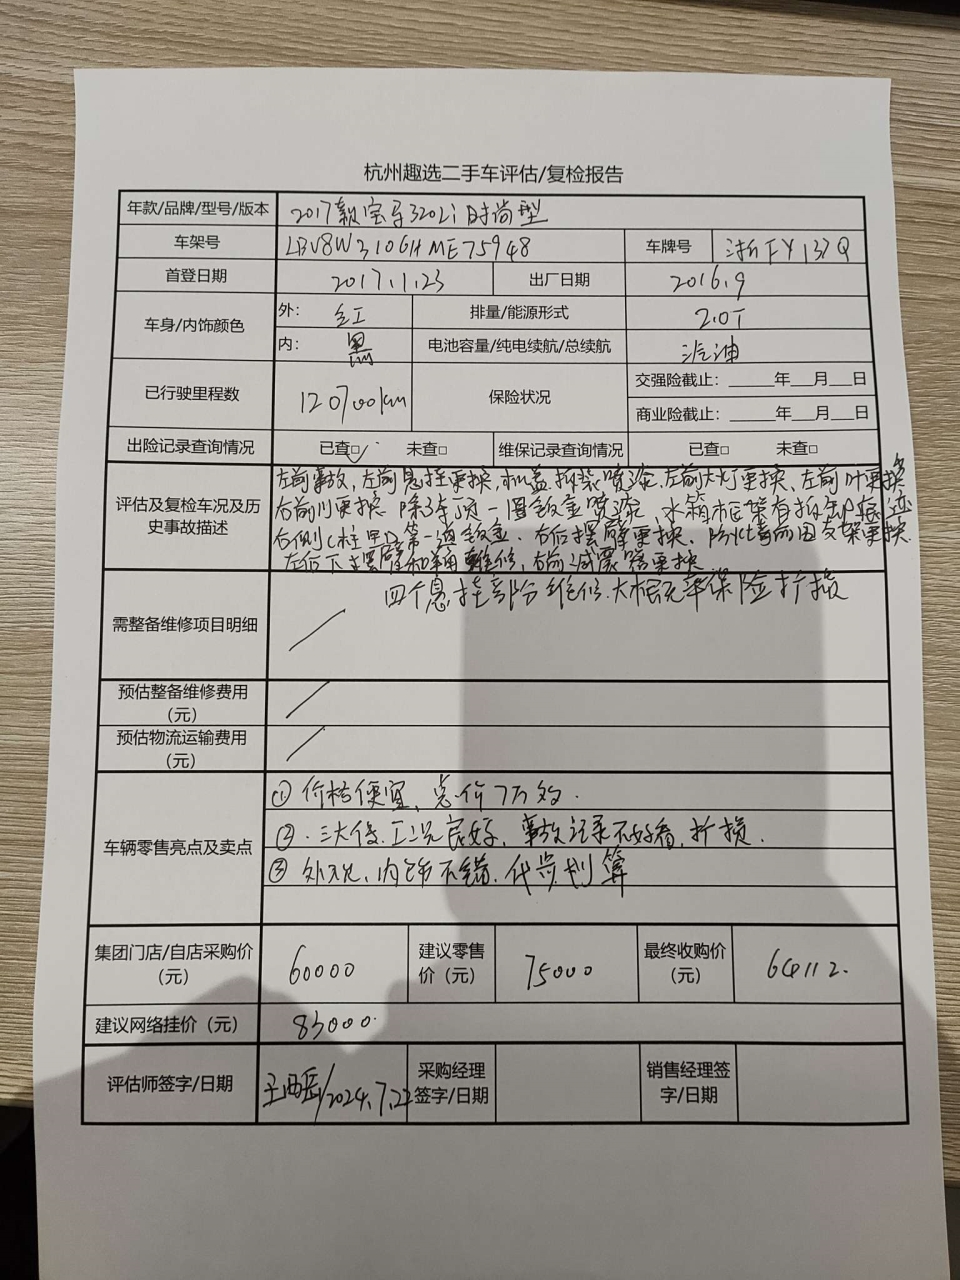 杭州趣选二手车评估/复检报告
年款/品牌/型号/版本 2017款宝马320Li时尚型
车架号 LBV8W3106HME75948 车牌号 浙FY137Q
首登日期 2017.1.23 出厂日期 2016.9
车身/内饰颜色 外: 红 排量/能源形式 2.0T
内: 黑 电池容量/纯电续航/总续航 汽油
已行驶里程数 120700km 保险状况 交强险截止: 年 月 日
商业险截止: 年 月 日
出险记录查询情况 已查□ 未查□ 维保记录查询情况 已查□ 未查□
评估及复检车况及历史事故描述
左前事故,左前悬挂更换,机盖拆装喷漆,左前大灯更换、左前叶更换
右前叶更换 除车顶一圈钣金喷漆、水箱框架有拆卸痕迹
右侧C柱 第一道钣金、右后摆臂更换、防火墙前围支架更换
左右下主摆臂和 维修,右前减震器更换
需整备维修项目明细 四个悬挂部分维修.大概无率保险折损
预估整备维修费用(元)
预估物流运输费用(元)
车辆零售亮点及卖点
① 价格便宜、总价7万多.
② 三大件.工况良好、事故记录不好看,折损.
③ 外观、内饰不错.代步划算
集团门店/自店采购价(元) 60000 建议零售价(元) 75000 最终收购价(元) 64112.
建议网络挂价(元) 83000.
评估师签字/日期 /2024.7.22 采购经理签字/日期 销售经理签字/日期